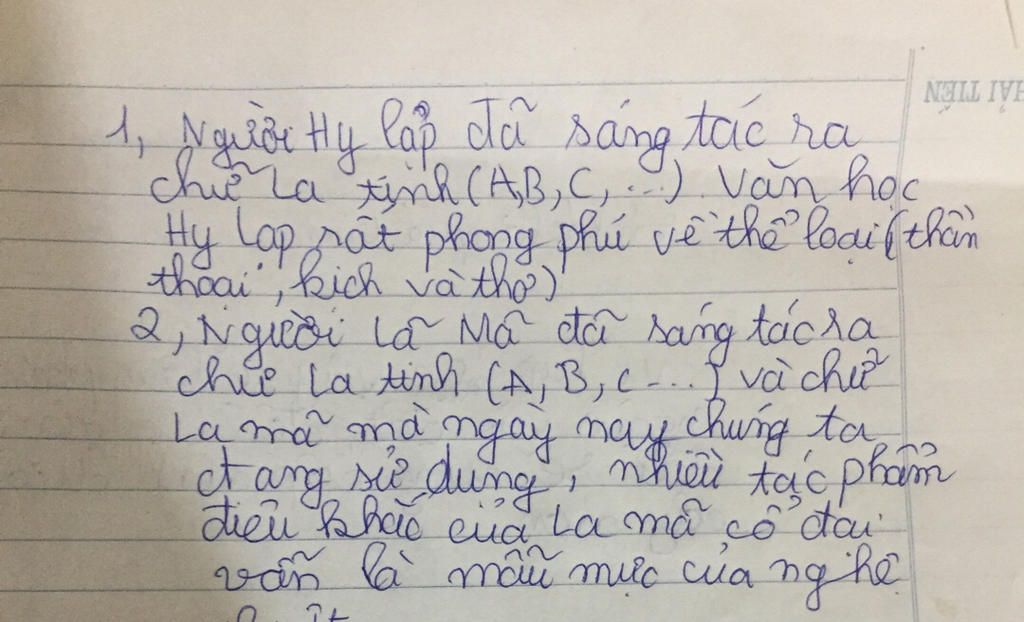 HẢI TIẾN
1, Người Hy Lạp đã sáng tác ra
chữ La tinh (A,B,C,...). Văn học
Hy Lạp rất phong phú về thể loại (thần
thoại, kịch và thơ)
2, Người Lã Mã đã sáng tác ra
chữ La tinh (A,B,C....) và chữ
La mã mà ngày nay chúng ta
đang sử dụng, nhiều tác phẩm
điêu khắc của La mã cổ đại
vẫn là mẫu mực của nghệ